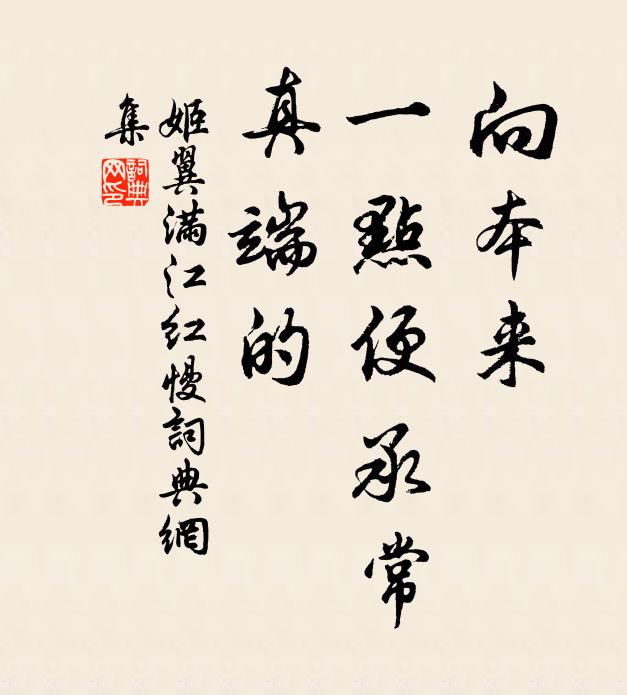 向本来
一點便承常
真端的
姬翼满江红慢詞典網
集
詞典
网印